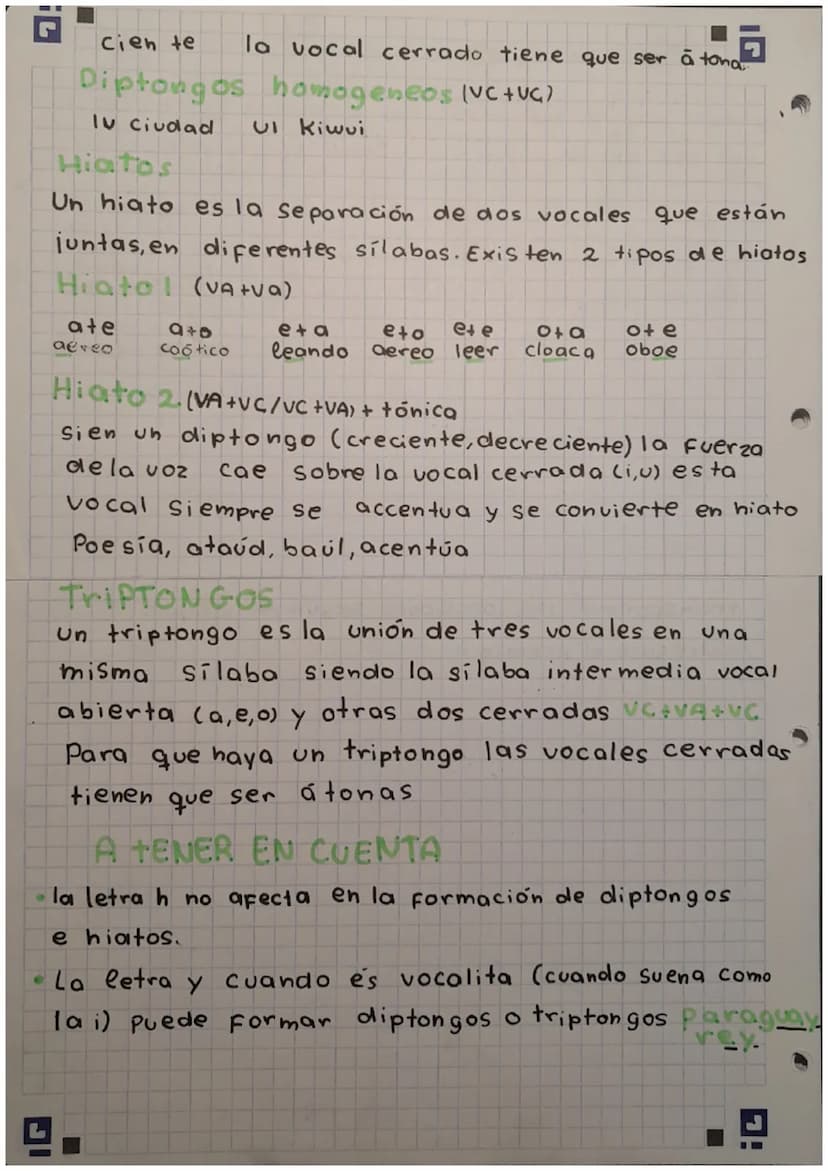 ciente la vocal cerrado tiene que ser átona.
Diptongos homogeneos (VC+VC)
IU Ciudad UI Kiwui
Hiatos
Un hiato es la separación de dos vocales que están
juntas, en diferentes sílabas. Existen 2 tipos de hiatos
Hiato 1 (VA+Va)
a+e a+o e+a e+o e+e o+a o+e
aéreo caótico leando aereo leer cloaca oboe
Hiato 2. (VA+VC/VC+VA) + tónica
Si en un diptongo (creciente, decreciente) la fuerza
de la voz cae sobre la vocal cerrada (i,u) esta
vocal siempre se accentua y se convierte en hiato
Poesía, ataúd, baúl, acentúa
TRIPTONGOS
un triptongo es la unión de tres vocales en una
misma sílaba siendo la sílaba intermedia vocal
abierta (a,e,o) y otras dos cerradas VC+VA+VC
Para que haya un triptongo las vocales cerradas
tienen que ser átonas
A TENER EN CUENTA
• la letra h no afecta en la formación de diptongos
e hiatos.
• La letra y cuando és vocalita (cuando suena como
la i) puede formar diptongos o triptongos Paraguay
rey.